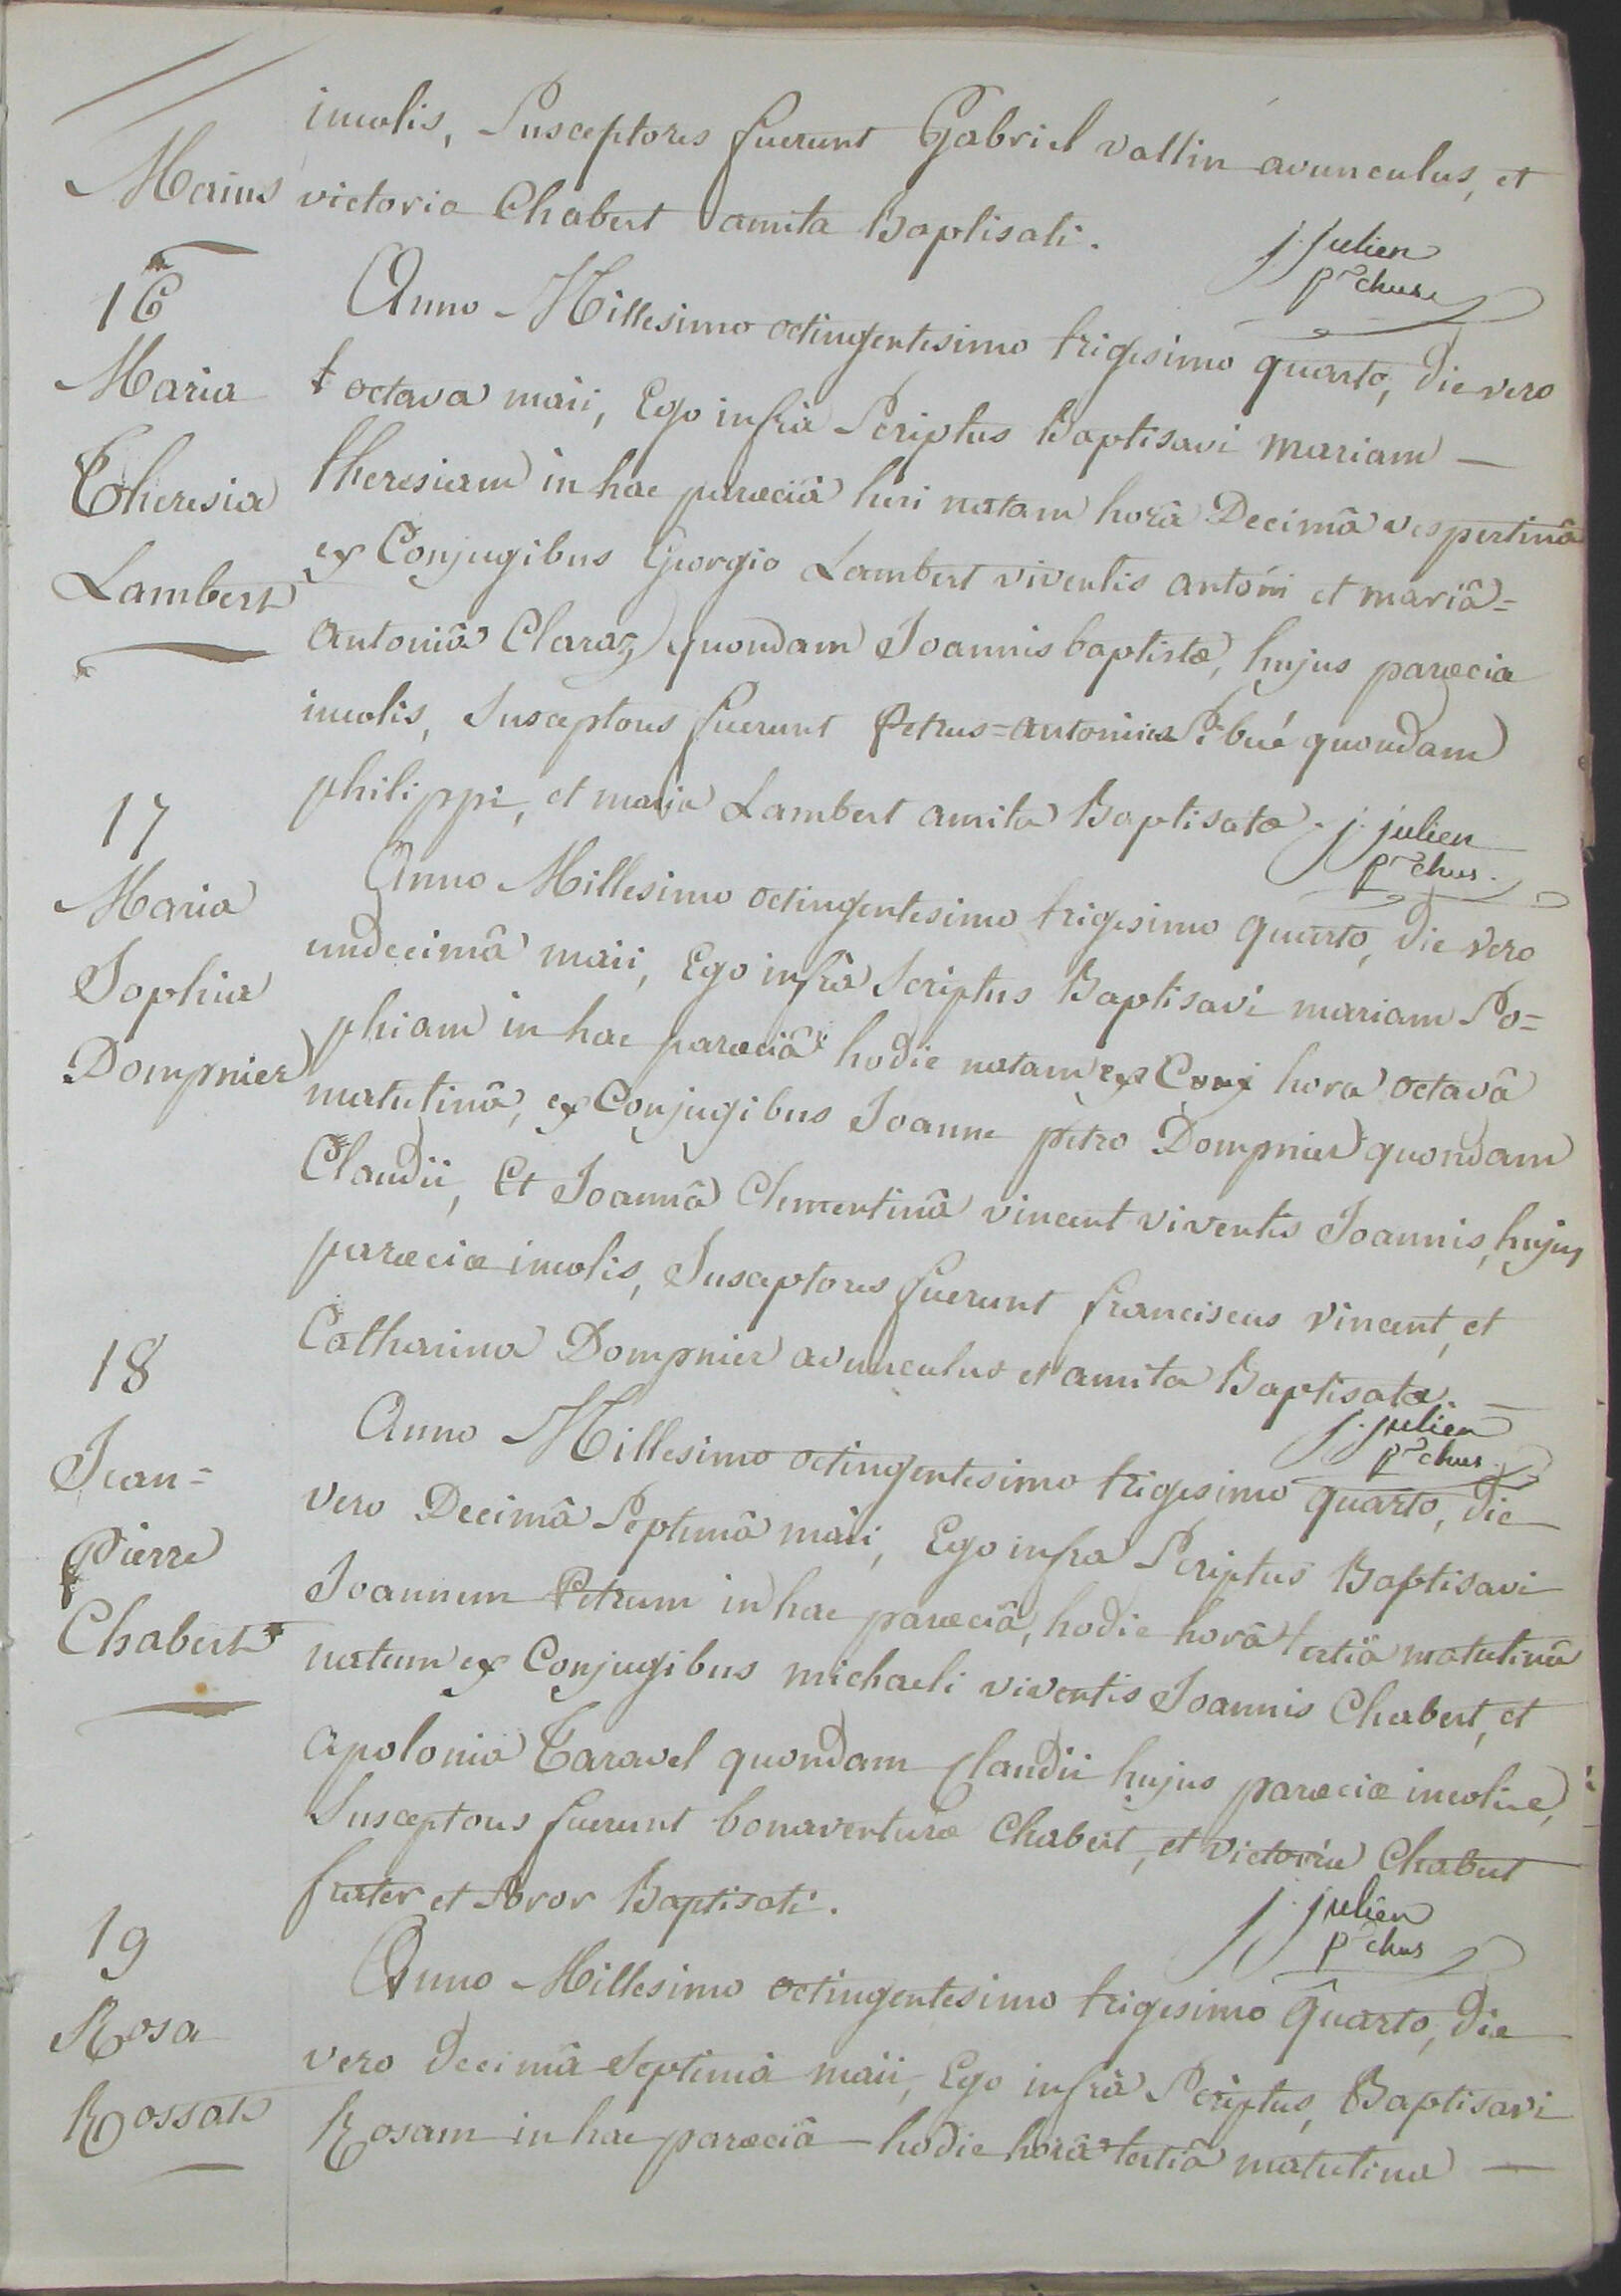 Maius
incolis, Susceptores fuerunt Gabriel vallin avunculus, et
victoria Chabert amita Baptisati.
j. julien
p̃chus
16
Maria
Theresia
Lambert
Anno Millesimo octingentesimo trigesimo quarto, die vero
octava maii, Ego infrà Scriptus Baptisavi mariam —
theresiam in hac parœciâ heri natam horâ Decimâ vespertinâ
ex Conjugibus Georgio Lambert viventis antonii et mariâ=
antoniâ Claraz quondam Joannis baptistæ, hujus parœciæ
incolis, Susceptores fuerunt Petrus=antonius quondam
philippi, et maria Lambert amita Baptisatæ. j. julien
p̃chus.
17
Maria
Sophia
Dompnier
Anno Millesimo octingentesimo trigesimo quarto, die vero
undecimâ maii, Ego infrà Scriptus Baptisavi mariam So=
phiam in hac parœciâ hodie natam ex Conj hora octavâ
matutinâ, ex Conjugibus Joanne petro Dompnier quondam
Claudii, Et Joannâ Clementinâ vincent viventis Joannis, hujus
parœciæ incolis, Susceptores fuerunt franciscus vincent, et
Catharina Dompnier avunculus et amita Baptisatæ. —
j. julien
p̃chus.
18
Jean=
Pierre
Chabert
Anno Millesimo octingentesimo trigesimo quarto, die
vero Decimâ Septimâ maii, Ego infra Scriptus Baptisavi
Joannem Petrum in hac parœciâ, hodie horâ tertiâ matutinâ
natum ex Conjugibus michaeli viventis Joannis Chabert, et
apolonia Taravel quondam Claudii hujus parœciæ incolis,
Susceptores fuerunt bonaventura Chabert, et victoria Chabert
frater et Soror Baptisati.
j. julien
p̃chus
19
Rosa
Rossat
Anno Millesimo octingentesimo trigesimo quarto, die
vero decimâ Septimâ maii, Ego infrà Scriptus, Baptisavi
Rosam in hac parœciâ — hodie horâ tertiâ matutinâ —